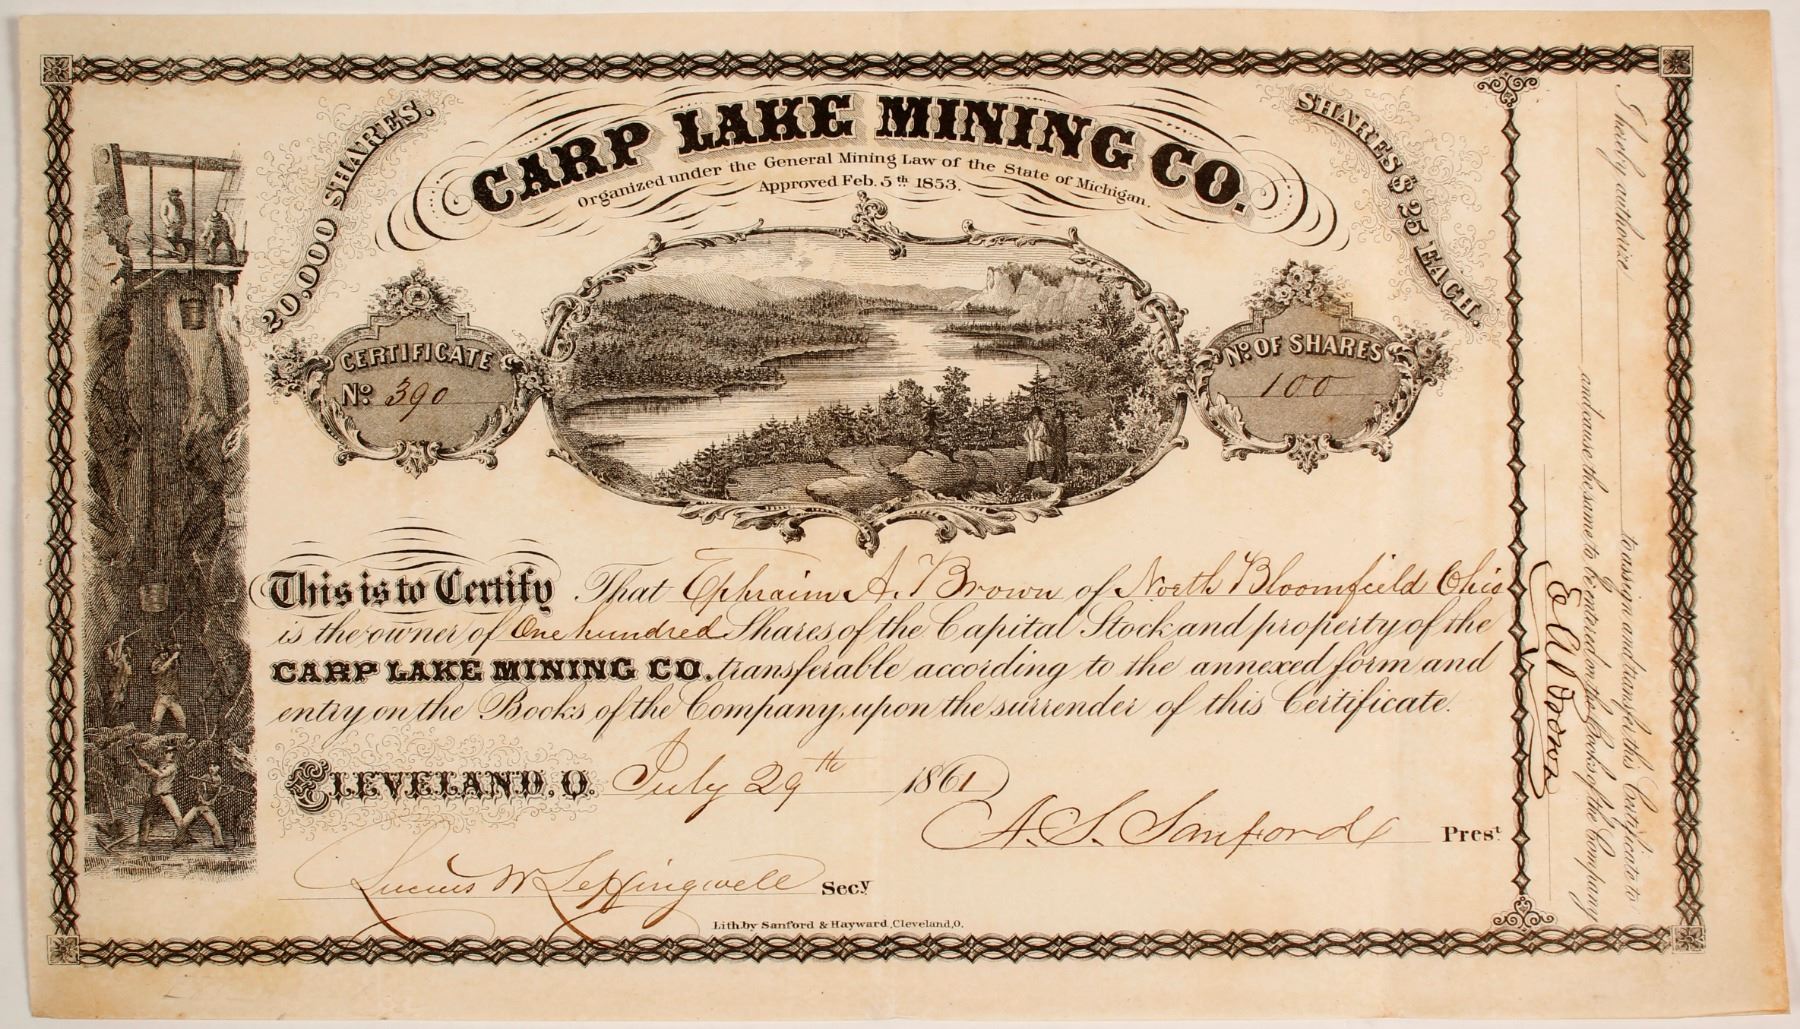 20,000 SHARES.
CARP LAKE MINING CO.
SHARES $25 EACH.
Organized under the General Mining Law of the State of Michigan.
Approved Feb. 5th 1853.
CERTIFICATE
No. 390
No. OF SHARES
100
This is to Certify That Ephraim A. Brown of North Bloomfield Ohio
is the owner of One hundred Shares of the Capital Stock and property of the
CARP LAKE MINING CO. transferable according to the annexed form and
entry on the Books of the Company, upon the surrender of this Certificate.
CLEVELAND, O. July 29th 1861
A. S. Sanford Prest
Lucius W Leffingwell Secy
Lith. by Sanford & Hayward, Cleveland, O.
I hereby authorize
to assign and transfer this Certificate to
and cause the same to be entered on the Books of the Company
E A Brown